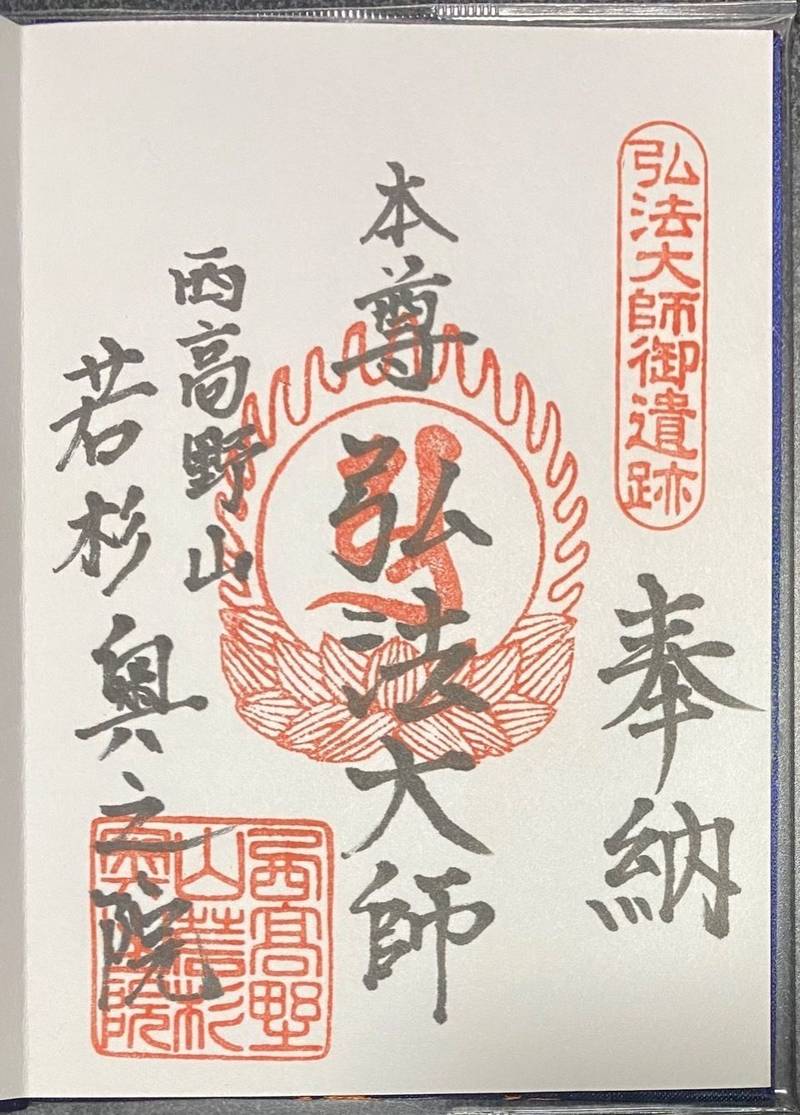 弘法大師御遺跡
奉納
本尊 弘法大師
西高野山
若杉奥之院
西高野
山若杉
奥之院